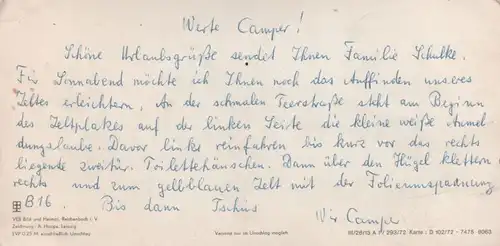 Werte Camper!
Schöne Urlaubsgrüße sendet Ihnen Familie Schulke.
Für Sonnabend möchte ich Ihnen noch das Auffinden unseres
Zeltes erleichtern. An der schmalen Teerstraße steht am Beginn
des Zeltplatzes auf der linken Seite die kleine weiße Anmel-
dungslaube. Davor links reinfahren bis kurz vor das rechts
liegende zweitür. Toilettehäuschen. Dann über den Hügel klettern
rechts und zum gelbblauen Zelt mit der Folienumspannung
B 16. Bis dann Tschüs
Wir Camper
VEB Bild und Heimat, Reichenbach i. V.
Zeichnung: A. Hoppe, Leipzig
EVP 0,25 M einschließlich Umschlag
Versand nur im Umschlag möglich
III/26/13 A 293/72 Karte: D 102/72 - 7478 8063